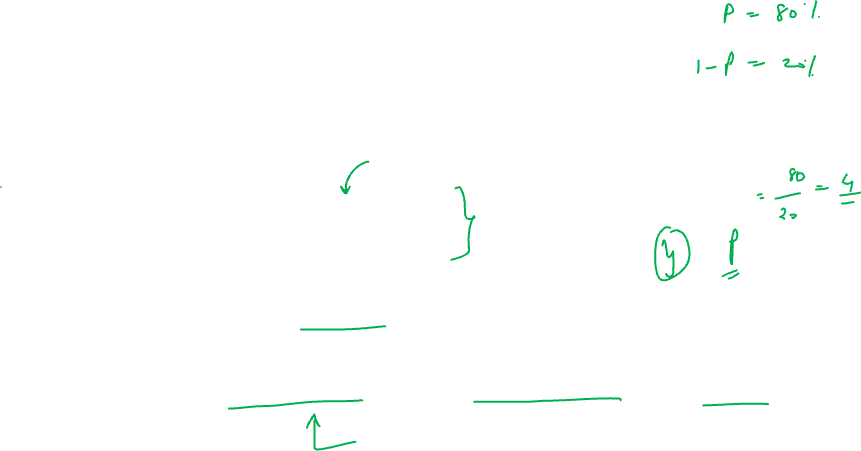 P = 80%
1-P = 20%
= 80/20 = 4
y P